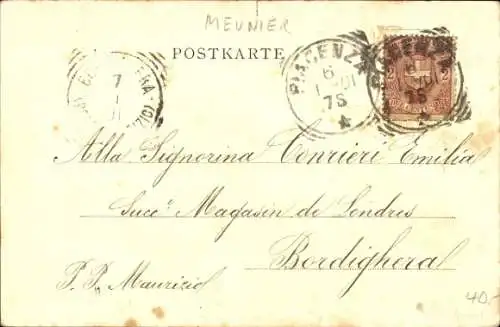 MEUNIER
POSTKARTE
PIACENZA
6
75
7
Alla Signorina Tonrieri Emilia
Succ.i Magasin de Londres
Bordighera
P. P. Maurizio
40.-